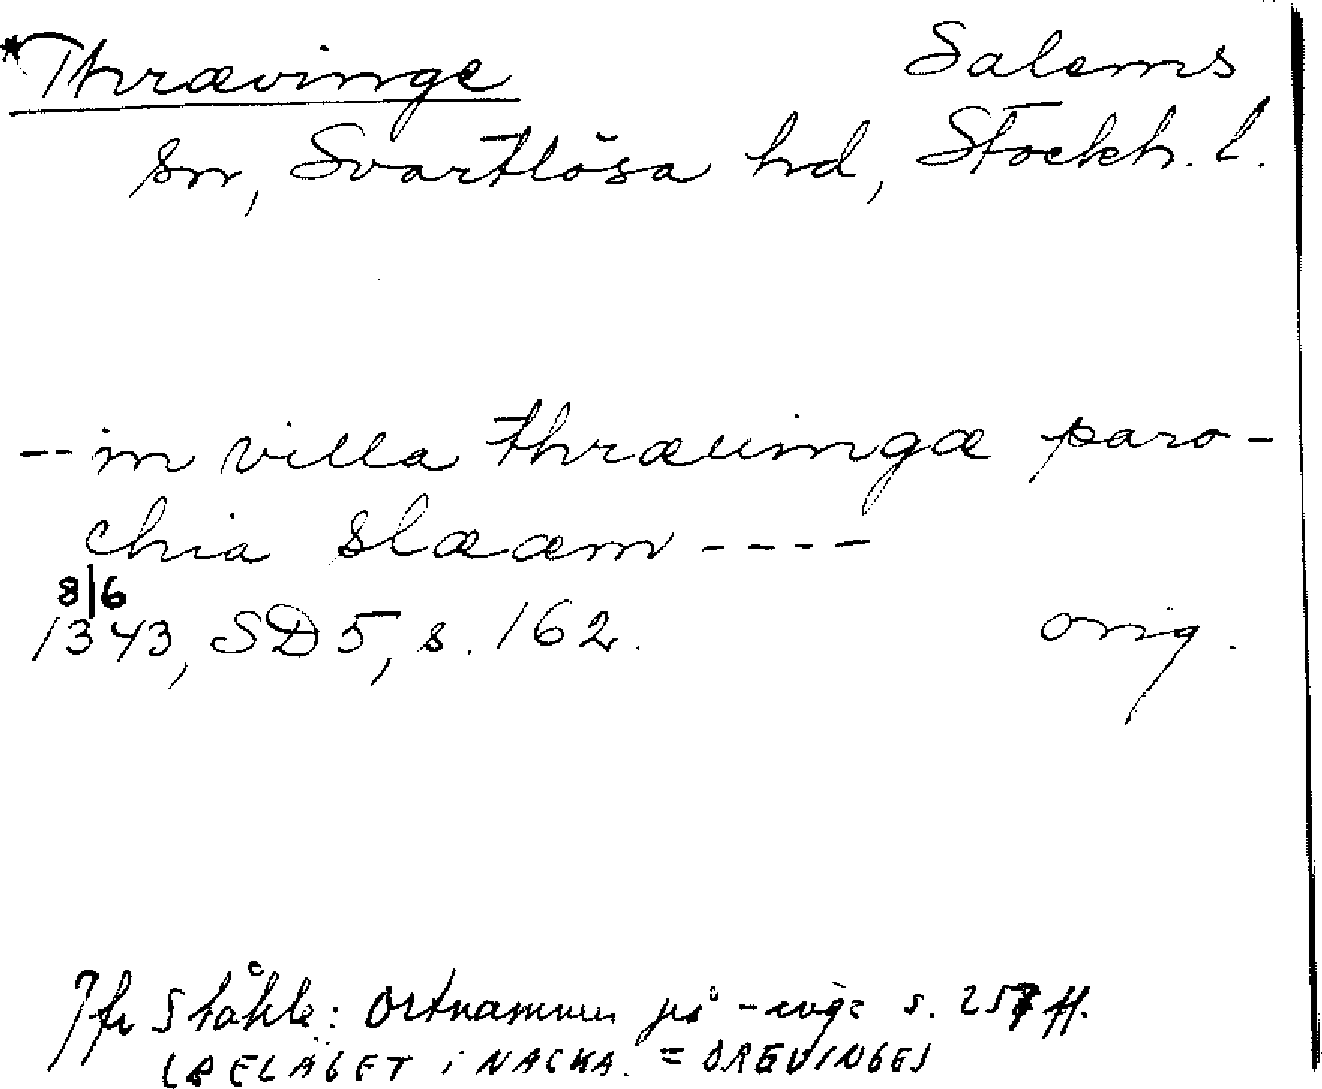 *Thrævinge Salems
sn, Svartlösa hd, Stockh. l.
-- in villa thræuingæ paro-
chia slææm ----
8/6
1343, SD 5, s. 162. orig.
Jfr Ståhle: Ortnamnen på -inge s. 257 ff.
(BELÄGET i NACKA. = DREVINGE)